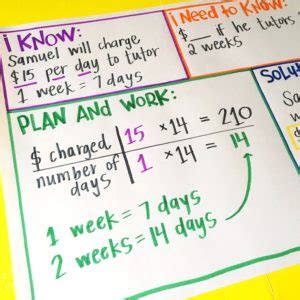 i KNOW:
Samuel will charge
$15 per day to tutor
1 week = 7 days
i Need to Know:
$__ if he tutors
2 weeks
PLAN AND WORK:
$ charged 15 ×14 = 210
number of days 1 ×14 = 14
1 week = 7 days
2 weeks = 14 days